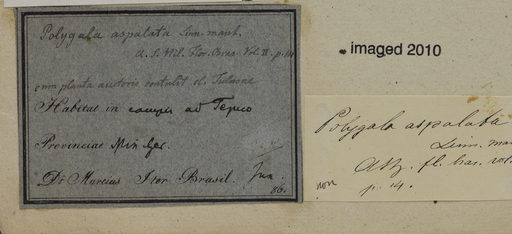 Polygala aspalata Linn. mant.
A. S. Hil. Flor. Bras. Vol. II. p. 14
cum planta auctoris contulit cl.
Habitat in campis ad Tejuco
Provinciae Min. Ger.
Dr Martius Iter Brasil. Jun.
86.
imaged 2010
Polygala aspalata
Linn. man
fl. bras. vol.
non p. 14.